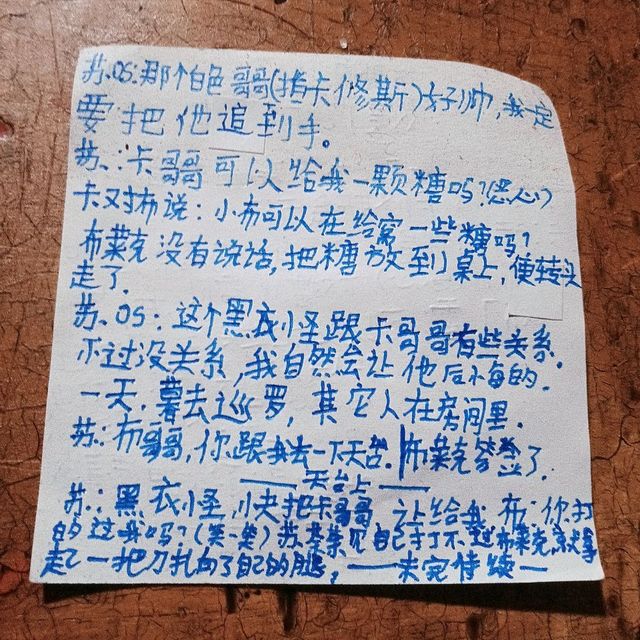 苏.OS:那个白色哥哥(指卡修斯)好帅,我一定
要把他追到手。
苏.:卡哥哥可以给我一颗糖吗?(恶心)
卡又对布说:小布可以在给窝一些糖吗?
布莱克没有说话,把糖放到桌上,便转头
走了.
苏.OS:这个黑衣怪跟卡哥哥有些关系.
不过没关系,我自然会让他后悔的.
一天,暮去巡罗,其它人在房间里.
苏.:布哥哥,你跟我去一下天台.布莱克答应了.
——天台上——
苏.:黑衣怪,快把卡哥哥让给我 布:你打
的过我吗?(笑一笑)苏 见自己打不过布莱克,就拿
起了一把刀扎向了自己的腿,——未完待续—